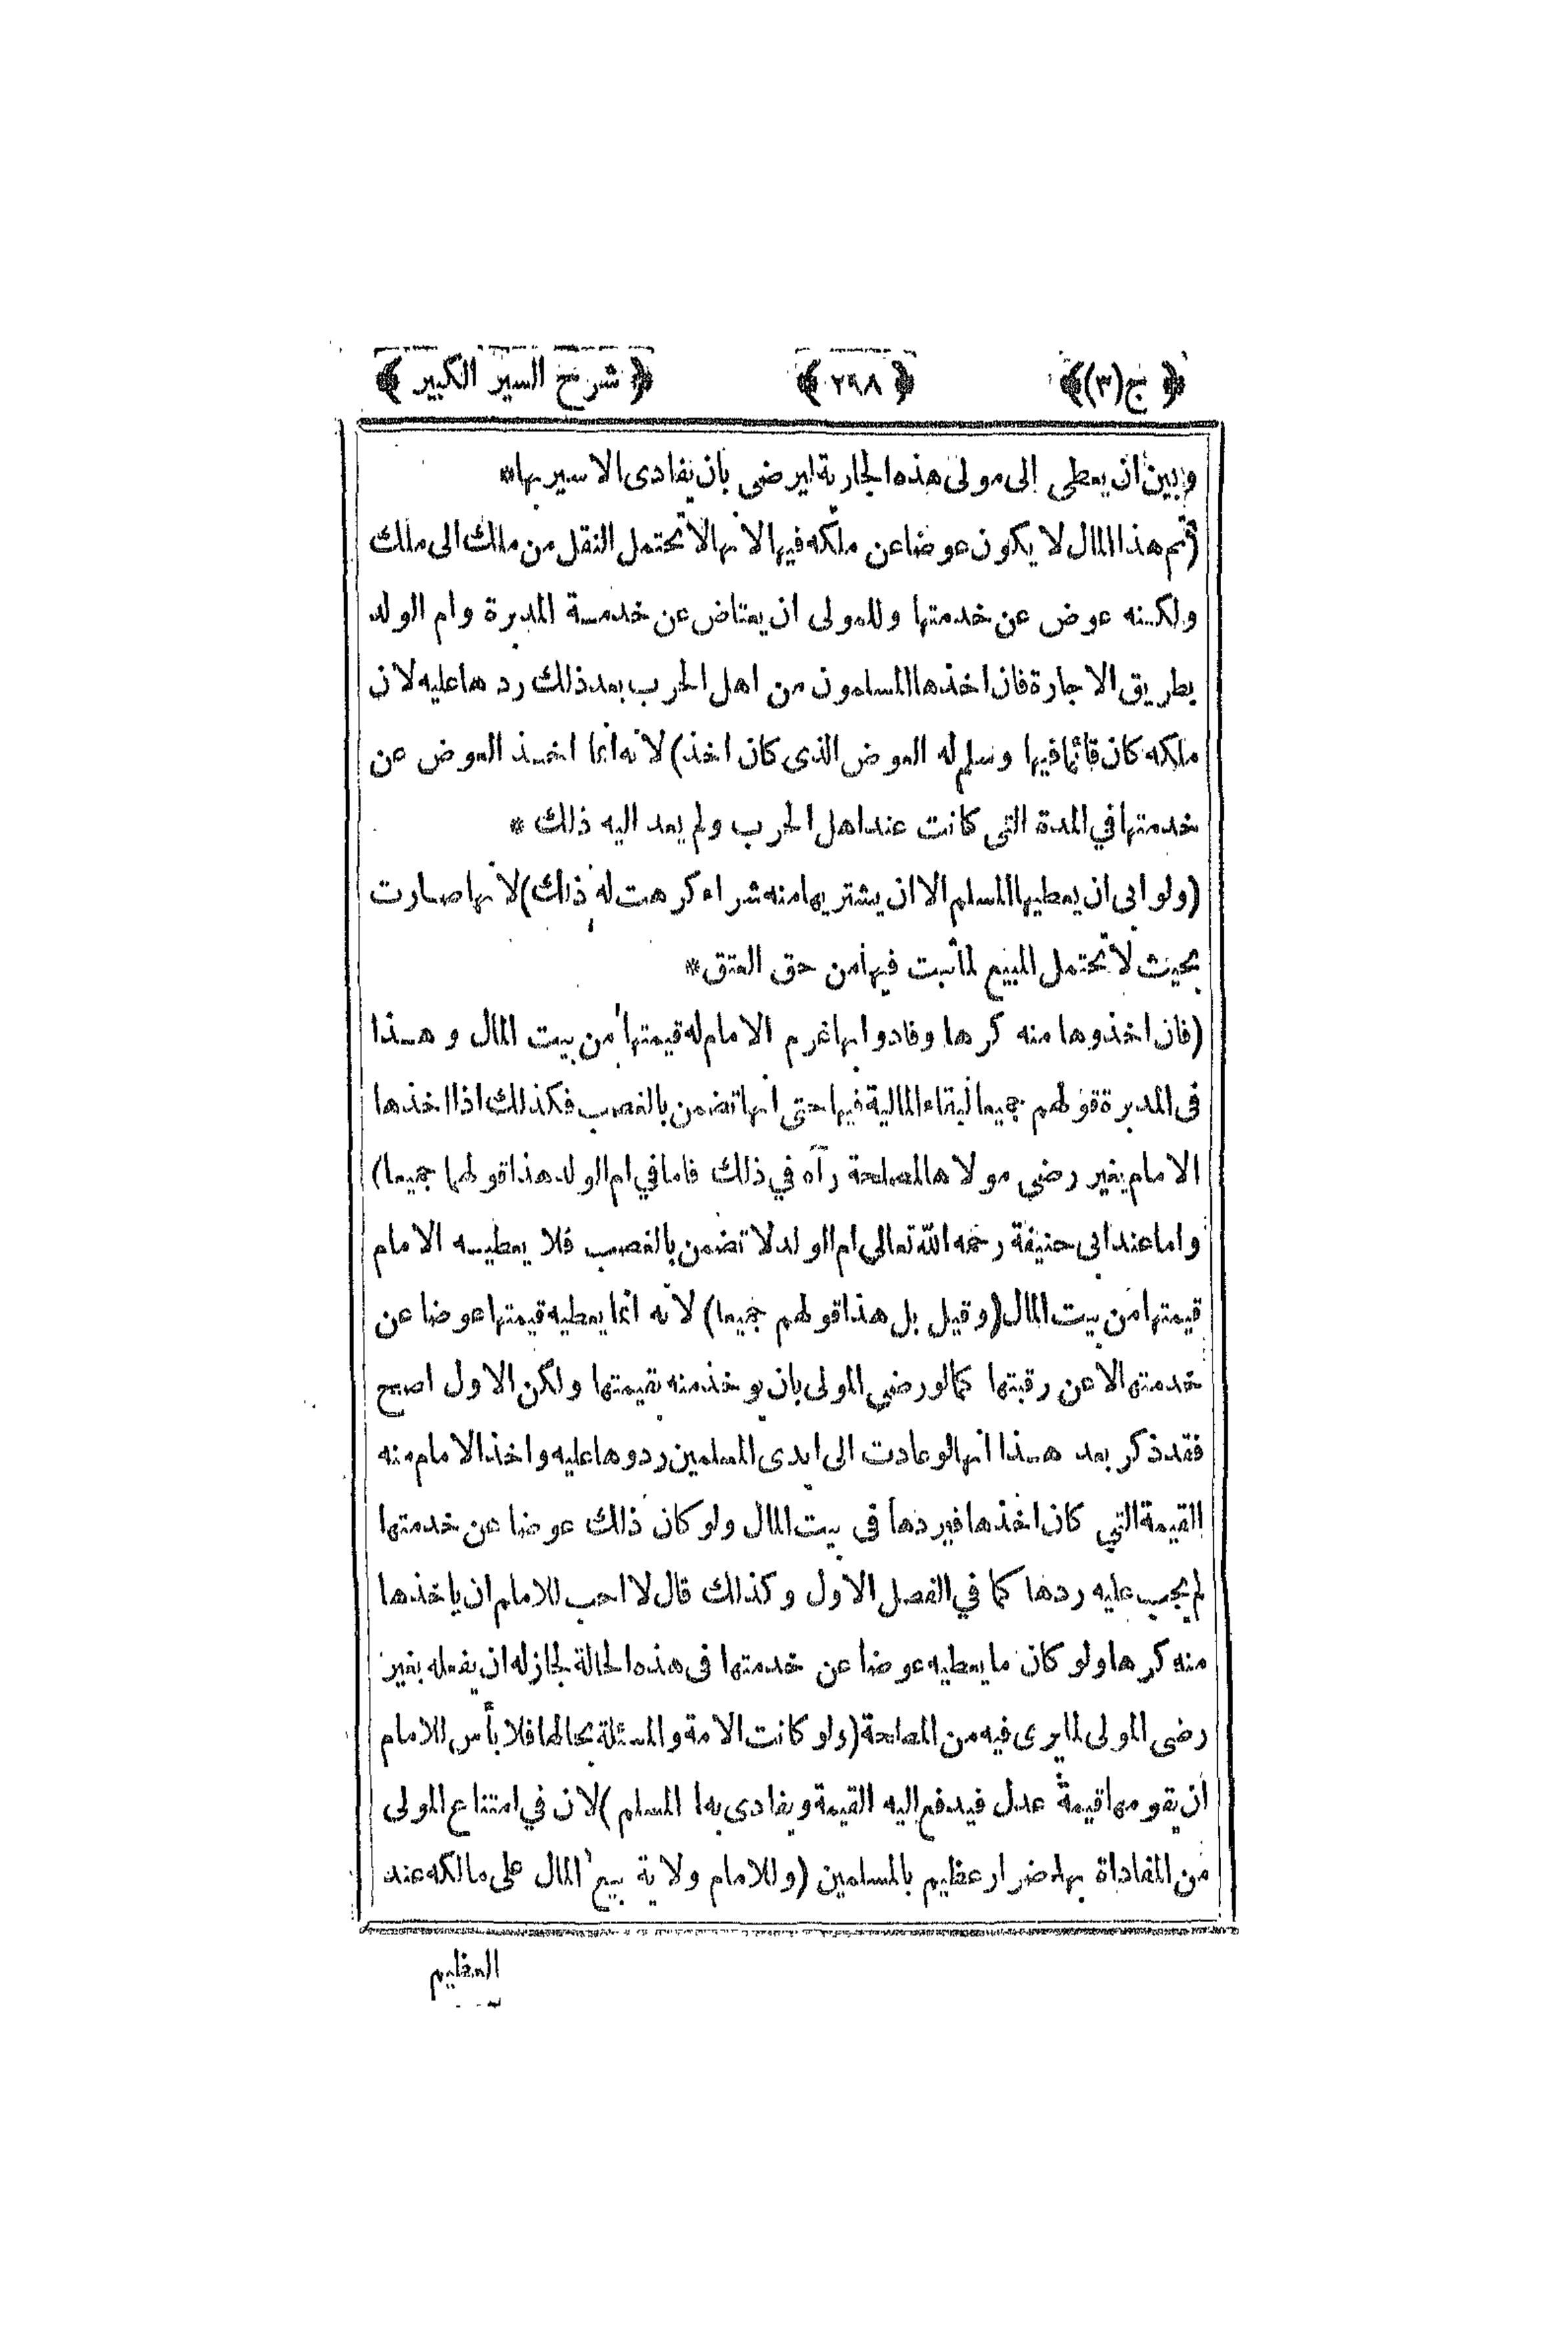 ﴿ ج(٣) ﴾ ﴿ ٢٩٨ ﴾ ﴿ شرح السير الكبير ﴾
وبين ان يعطى الى مولى هذه الجارية ليرضى بان يفادى الاسير بها*
(ثم هذا المال لا يكون عوضا عن ملكه فيها لانها لا تحتمل النقل من ملك الى ملك
ولكنه عوض عن خدمتها وللمولى ان يعتاض عن خدمة المدبرة وام الولد
بطريق الاجارة فان اخذها المسلمون من اهل الحرب بعد ذلك ردها عليه لان
ملكه كان قائما فيها وسلم له العوض الذى كان اخذ) لانه انما اخذ العوض عن
خدمتها في المدة التى كانت عند اهل الحرب ولم يعد اليه ذلك *
(ولو ابى ان يعطيها المسلم الا ان يشتريها منه شراء كرهت له ذلك) لانها صارت
بحيث لا تحتمل البيع لما ثبت فيها من حق العتق*
(فان اخذوها منه كرها وفادوا بها غرم الامام له قيمتها من بيت المال وهذا
فى المدبرة قولهم جميعا لبقاء المالية فيها حتى انها تضمن بالغصب فكذلك اذا اخذها
الامام بغير رضى مولاها لمصلحة رآه في ذلك فاما في ام الولد هذا قولهما جميعا)
واما عند ابى حنيفة رحمه الله تعالى ام الولد لا تضمن بالغصب فلا يعطيه الامام
قيمتها من بيت المال (وقيل بل هذا قولهم جميعا) لانه انما يعطيه قيمتها عوضا عن
خدمتها لا عن رقبتها كما لو رضى المولى بان يوخذ منه بقيمتها ولكن الاول اصح
فقد ذكر بعد هذا انها لو عادت الى ايدى المسلمين ردوها عليه واخذ الامام منه
القيمة التي كان اخذها فيردها فى بيت المال ولو كان ذلك عوضا عن خدمتها
لم يجب عليه ردها كما في الفصل الاول وكذلك قال لا احب للامام ان ياخذها
منه كرها ولو كان ما يعطيه عوضا عن خدمتها فى هذه الحالة لجاز له ان يفعله بغير
رضى المولى لما يرى فيه من المصلحة (ولو كانت الامة والمسئلة بحالها فلا بأس للامام
ان يقومها قيمة عدل فيدفع اليه القيمة ويفادى بها المسلم) لان في امتناع المولى
من المفاداة بها ضرار عظيم بالمسلمين (وللامام ولاية بيع المال على مالكه عند
العظيم